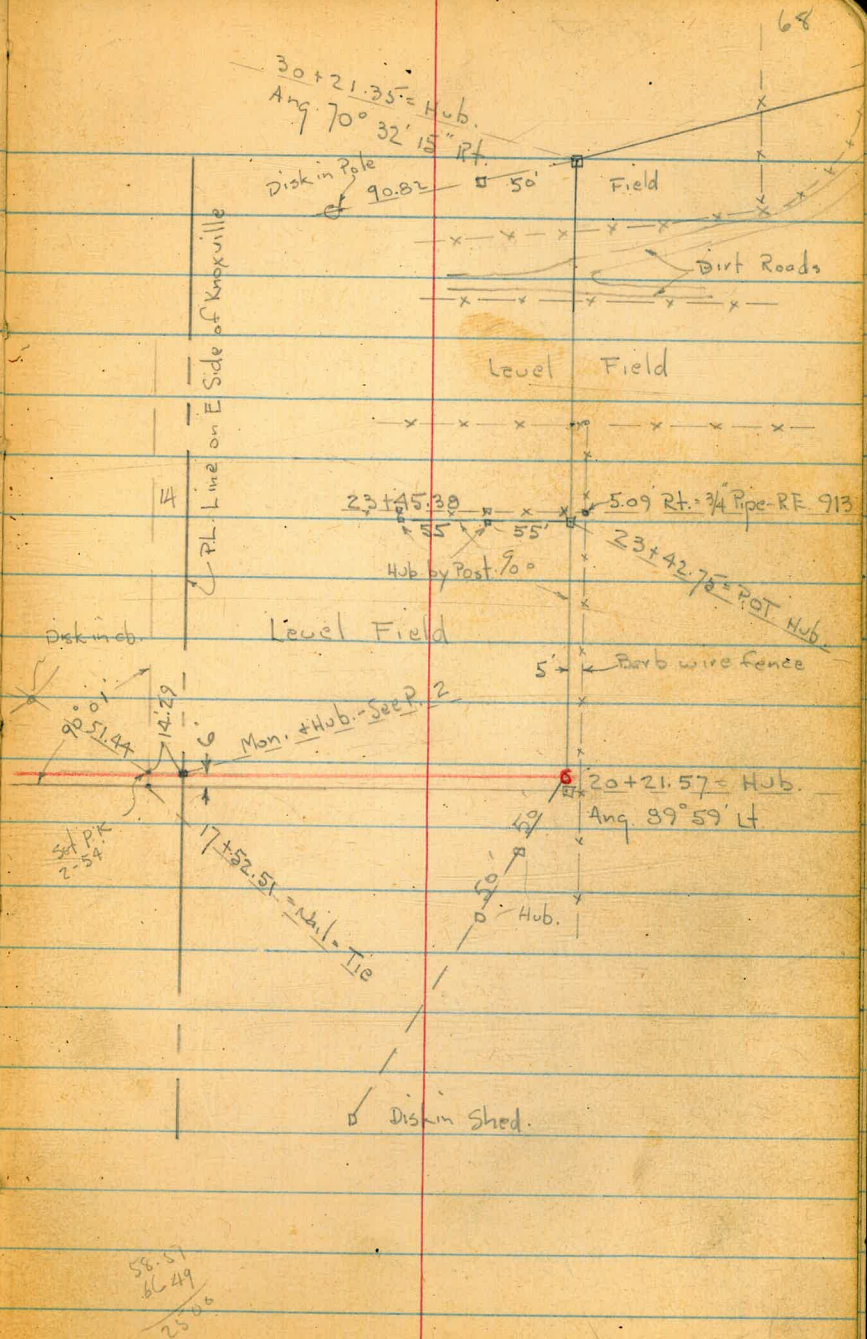 68
30+21.35 = Hub.
Ang. 70° 32' 15" Rt.
Disk in Pole
90.82
50'
Field
Dirt Roads
PL. Line on E Side of Knoxville
Level Field
14
23+45.38
5.09' Rt. = 3/4" Pipe-RE 913
55'
55'
Hub by Post. 90°
23+42.75 = P.O.T. Hub.
Disk in cb.
Level Field
5'
Barb wire fence
90° 01'
51.44
14.29
6'
Mon. & Hub. - See P. 2
20+21.57 = Hub.
Ang 89° 59' Lt
Set P.K
2-54
17+52.51 = Nail = Tie
50'
50'
Hub.
Disk in Shed.
58.51
66.49
2500